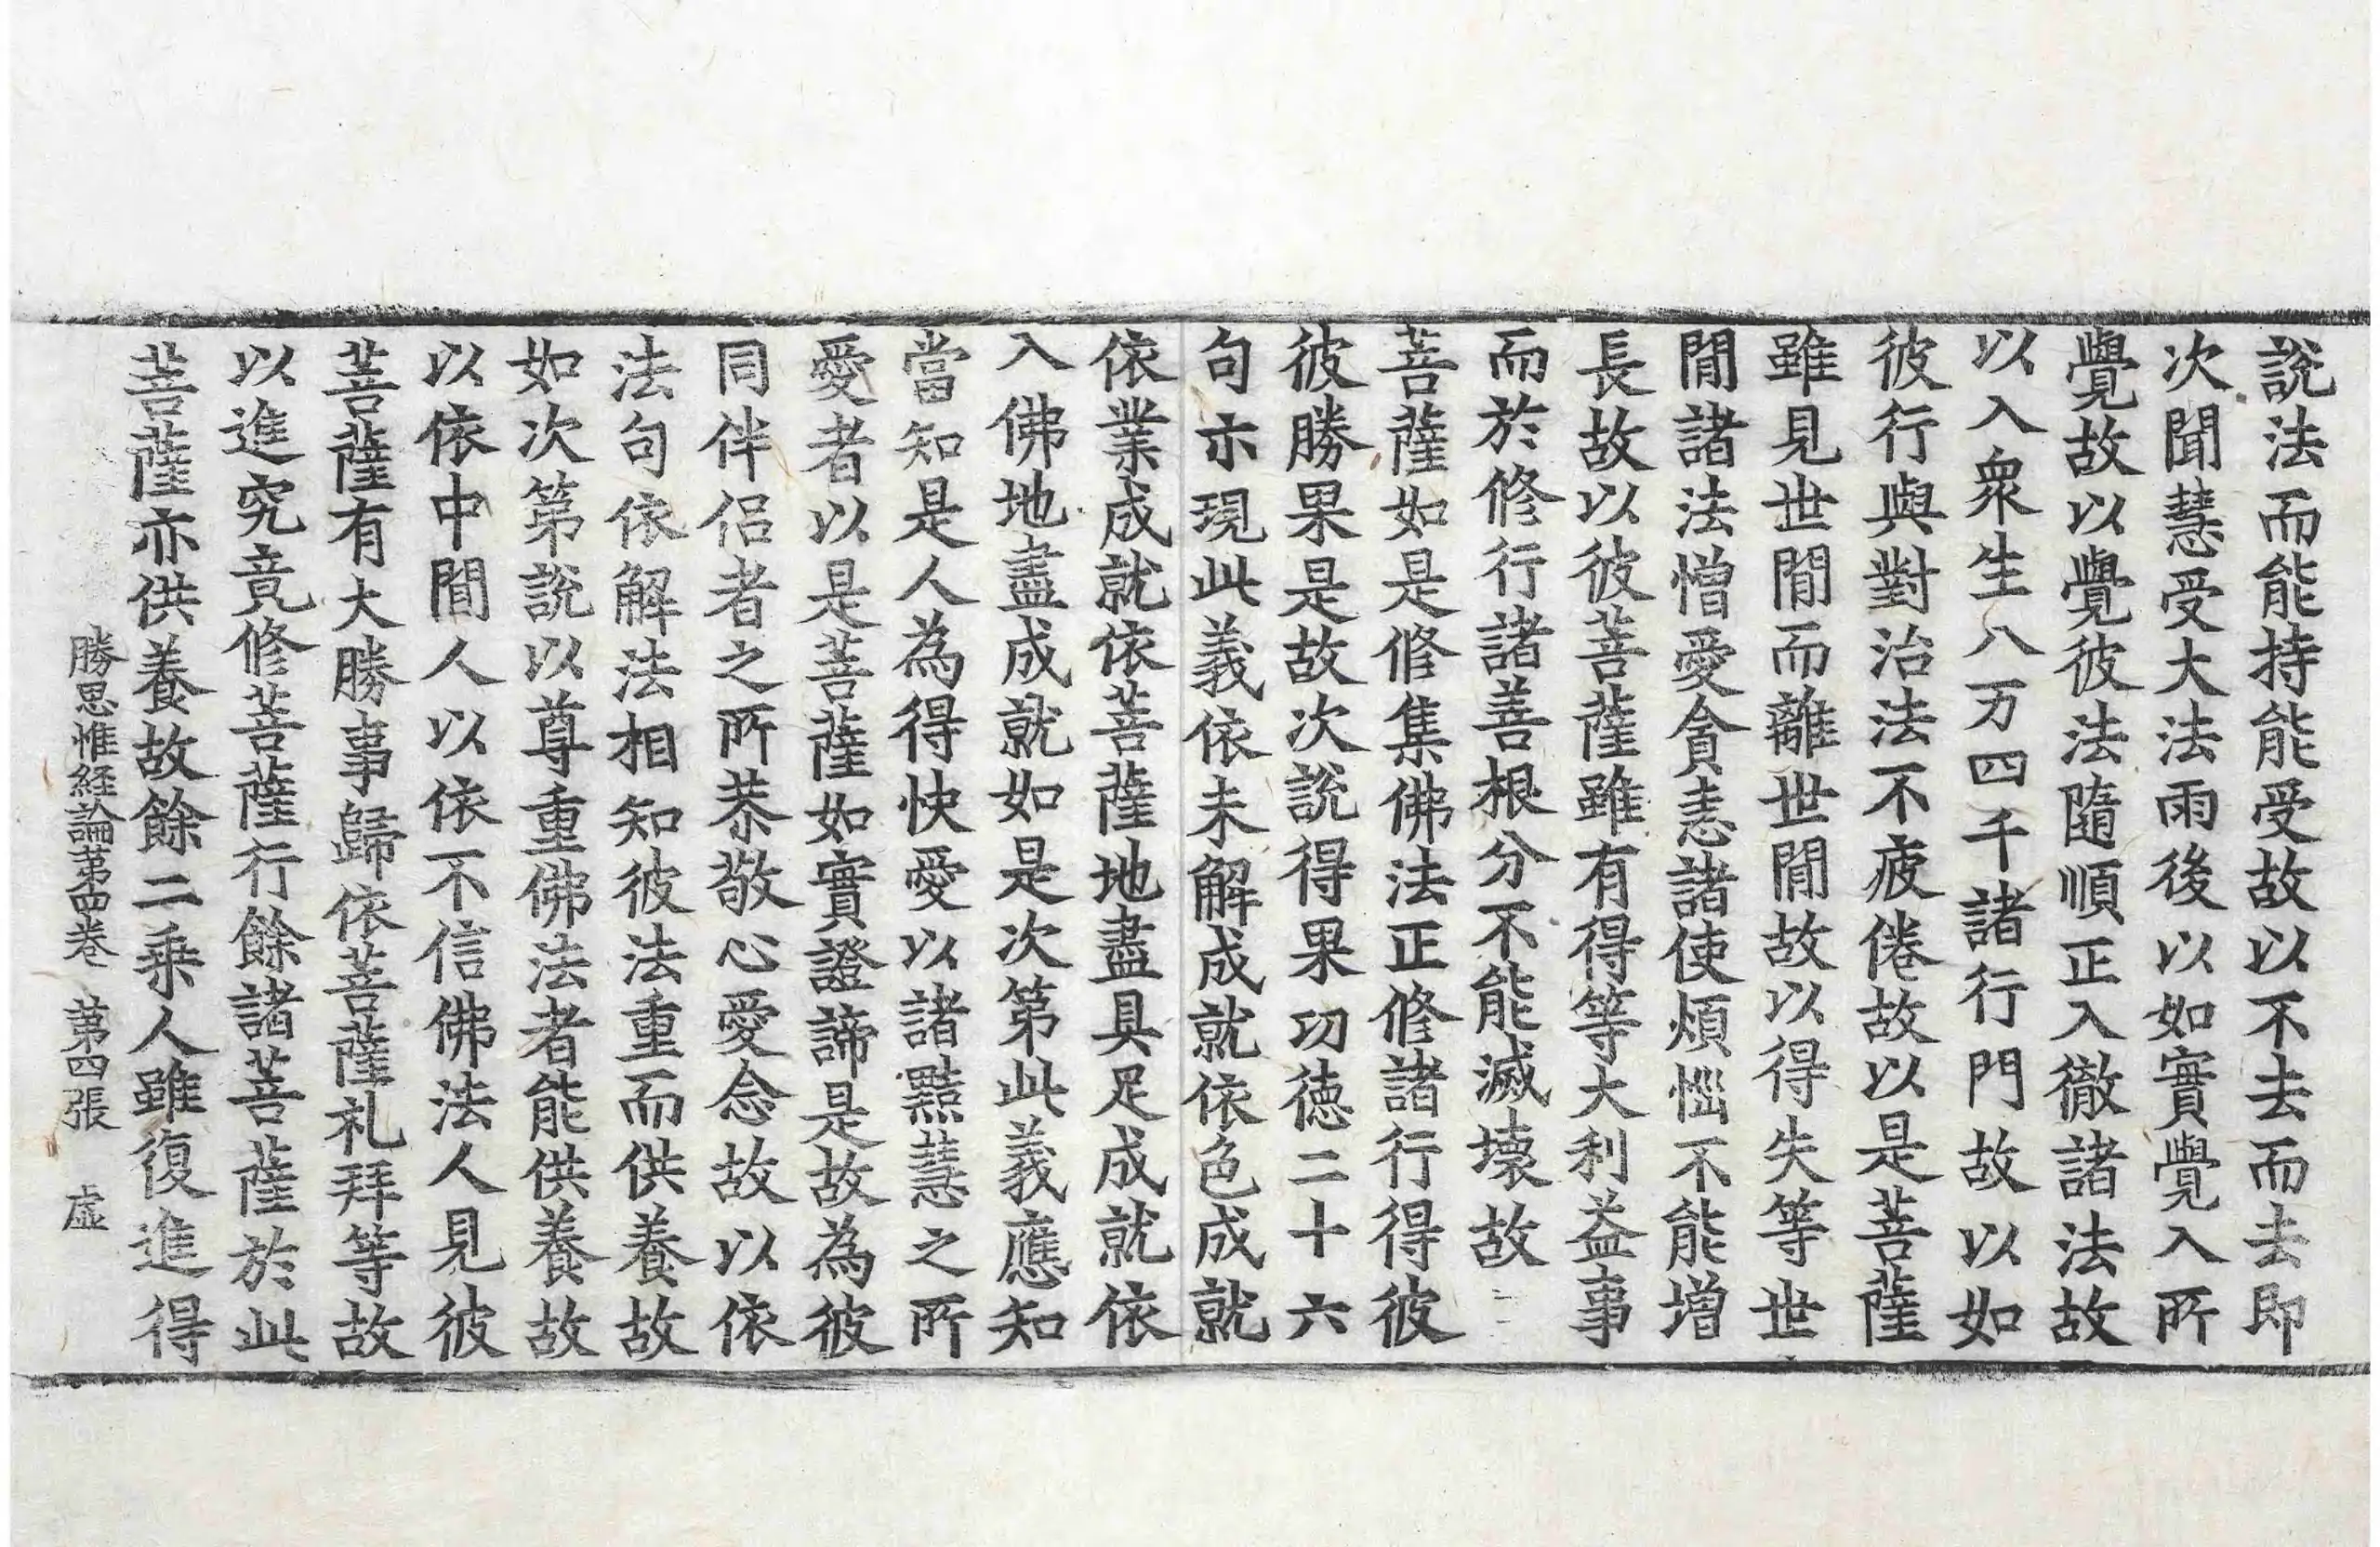 說法而能持能受故以不去而去即
次聞慧受大法雨後以如實覺入所
覺故以覺彼法隨順正入徹諸法故
以入衆生八万四千諸行門故以如
彼行與對治法不疲倦故以是菩薩
雖見世間而離世間故以得失等世
間諸法憎愛貪恚諸使煩惱不能增
長故以彼菩薩雖有得等大利益事
而於修行諸善根分不能滅壞故
菩薩如是修集佛法正修諸行得彼
彼勝果是故次說得果功徳二十六
句示現此義依未解成就依色成就
依業成就依菩薩地盡具足成就依
入佛地盡成就如是次第此義應知
當知是人為得快愛以諸黠慧之所
愛者以是菩薩如實證諦是故為彼
同伴侶者之所恭敬心愛念故以依
法句依解法相知彼法重而供養故
如次第說以尊重佛法者能供養故
以依中間人以依不信佛法人見彼
菩薩有大勝事歸依菩薩礼拜等故
以進究竟修菩薩行餘諸菩薩於此
菩薩亦供養故餘二乗人雖復進得
勝思惟経論苐四卷 苐四張 虛